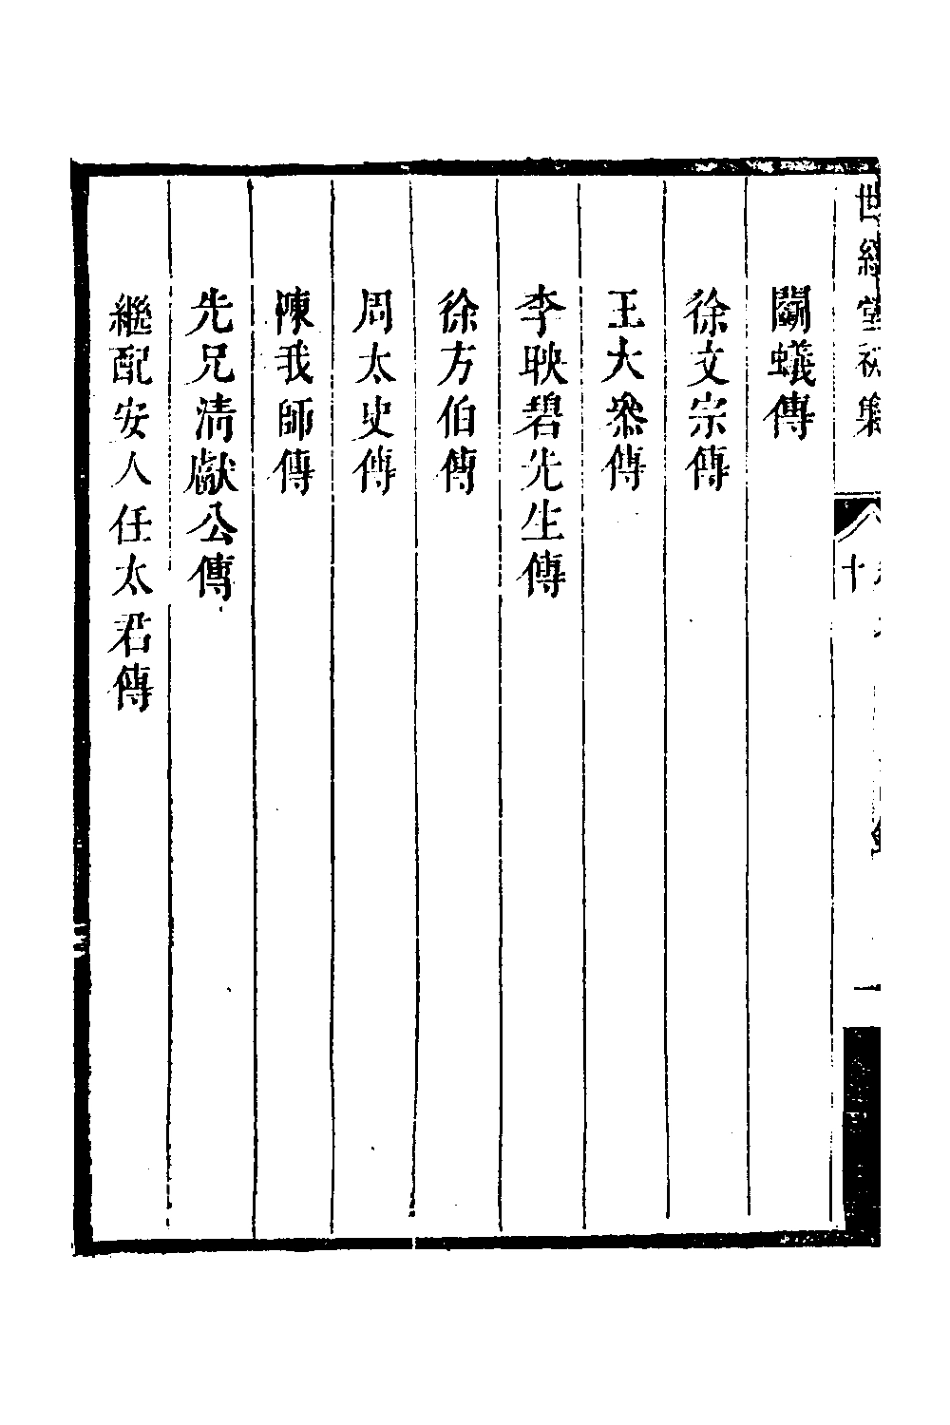 世經堂初集
十 一
鬬蟻傳
徐文宗傳
王大叅傳
李映碧先生傳
徐方伯傳
周太史傳
陳我師傳
先兄清獻公傳
繼配安人任太君傳